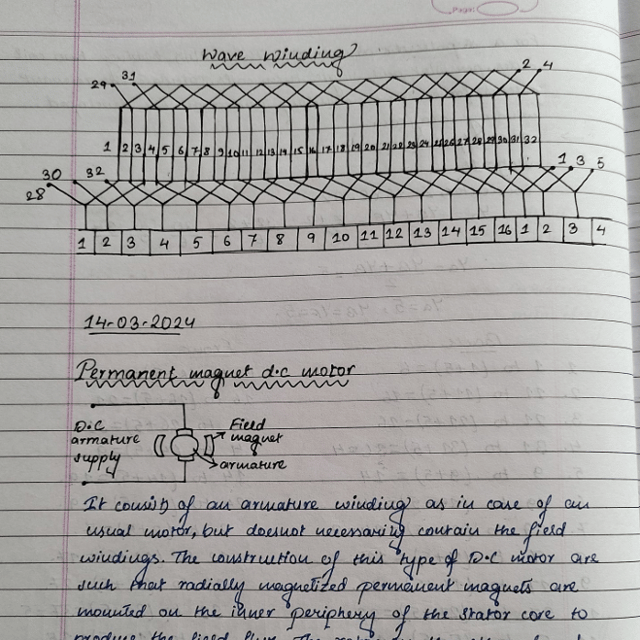 Page:
Wave winding
29 31 2 4
1 2 3 4 5 6 7 8 9 10 11 12 13 14 15 16 17 18 19 20 21 22 23 24 25 26 27 28 29 30 31 32
30 32 1 3 5
28
1 2 3 4 5 6 7 8 9 10 11 12 13 14 15 16 1 2 3 4
14-03-2024
Permanent magnet d.c motor
D.C Field
armature magnet
supply armature
It consists of an armature winding as in case of an
usual motor, but doesnot necessarily contain the field
windings. The construction of this type of D.C motor are
such that radially magnetized permanent magnets are
mounted on the inner periphery of the stator core to
produce the field flux. The